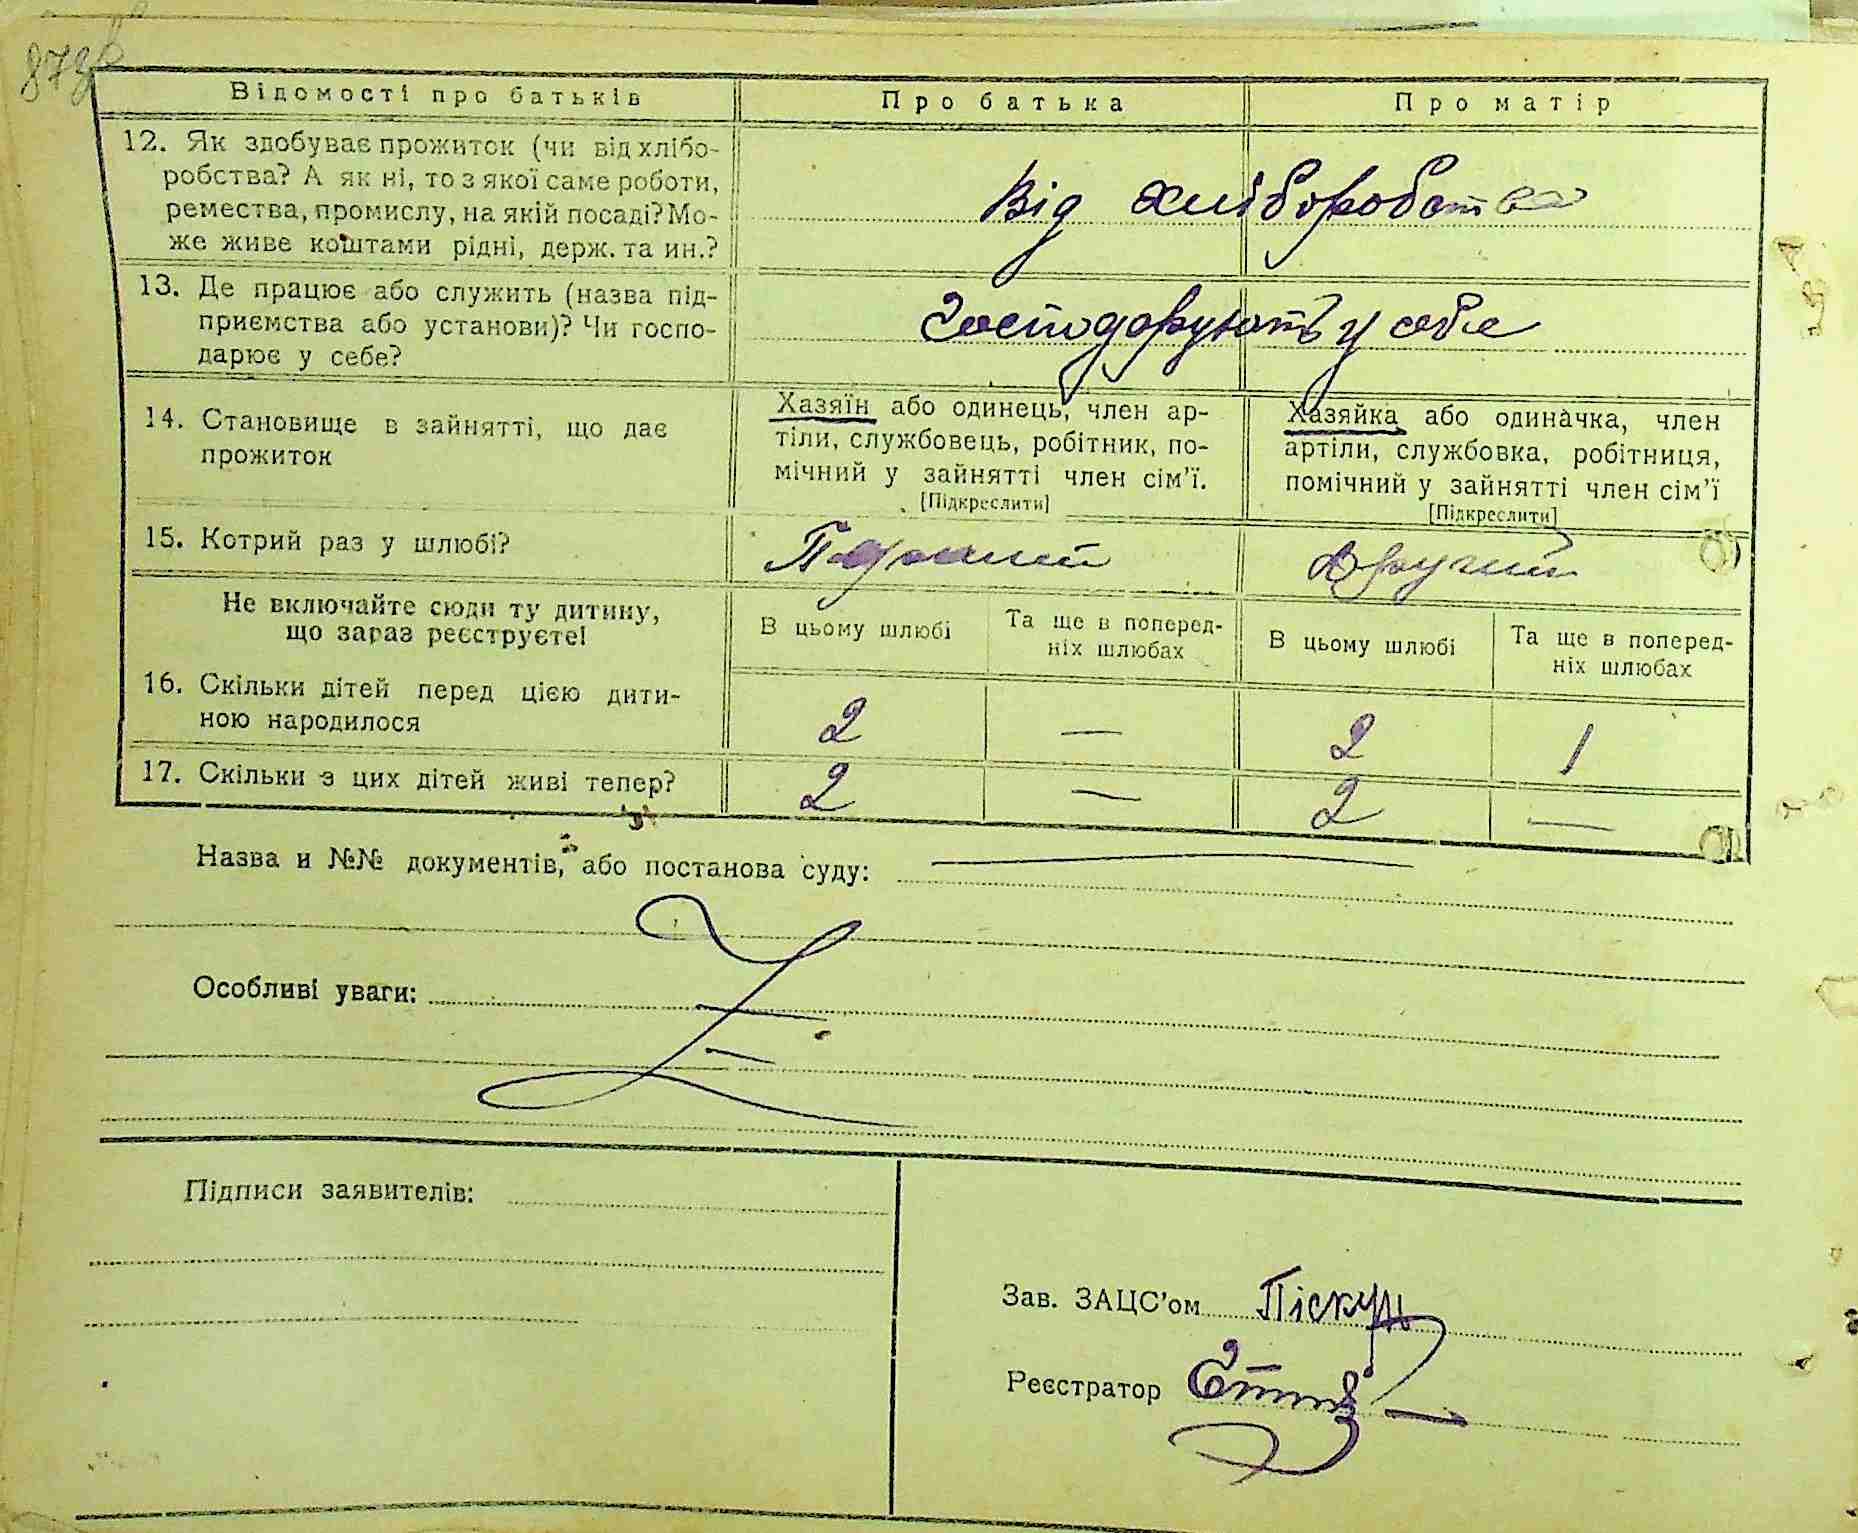 87зв
Відомості про батьків Про батька Про матір
12. Як здобуває прожиток (чи від хлібо-
робства? А як ні, то з якої саме роботи,
ремества, промислу, на якій посаді? Мо-
же живе коштами рідні, держ. та ин.?
Від хліборобства
13. Де працює або служить (назва під-
приємства або установи)? Чи госпо-
дарює у себе?
Господорують у себе
14. Становище в зайнятті, що дає
прожиток
Хазяїн або одинець, член ар-
тіли, службовець, робітник, по-
мічний у зайнятті член сім’ї.
[Підкреслити]
Хазяйка або одиначка, член
артіли, службовка, робітниця,
помічний у зайнятті член сім’ї
[Підкреслити]
15. Котрий раз у шлюбі? Перший Другий
Не включайте сюди ту дитину,
що зараз реєструєте!
В цьому шлюбі Та ще в поперед-
ніх шлюбах
В цьому шлюбі Та ще в поперед-
ніх шлюбах
16. Скільки дітей перед цією дити-
ною народилося
2 — 2 1
17. Скільки з цих дітей живі тепер? 2 — 2 —
Назва и №№ документів, або постанова суду: —
Особливі уваги:
Підписи заявителів:
Зав. ЗАЦС’ом Піскун
Реєстратор